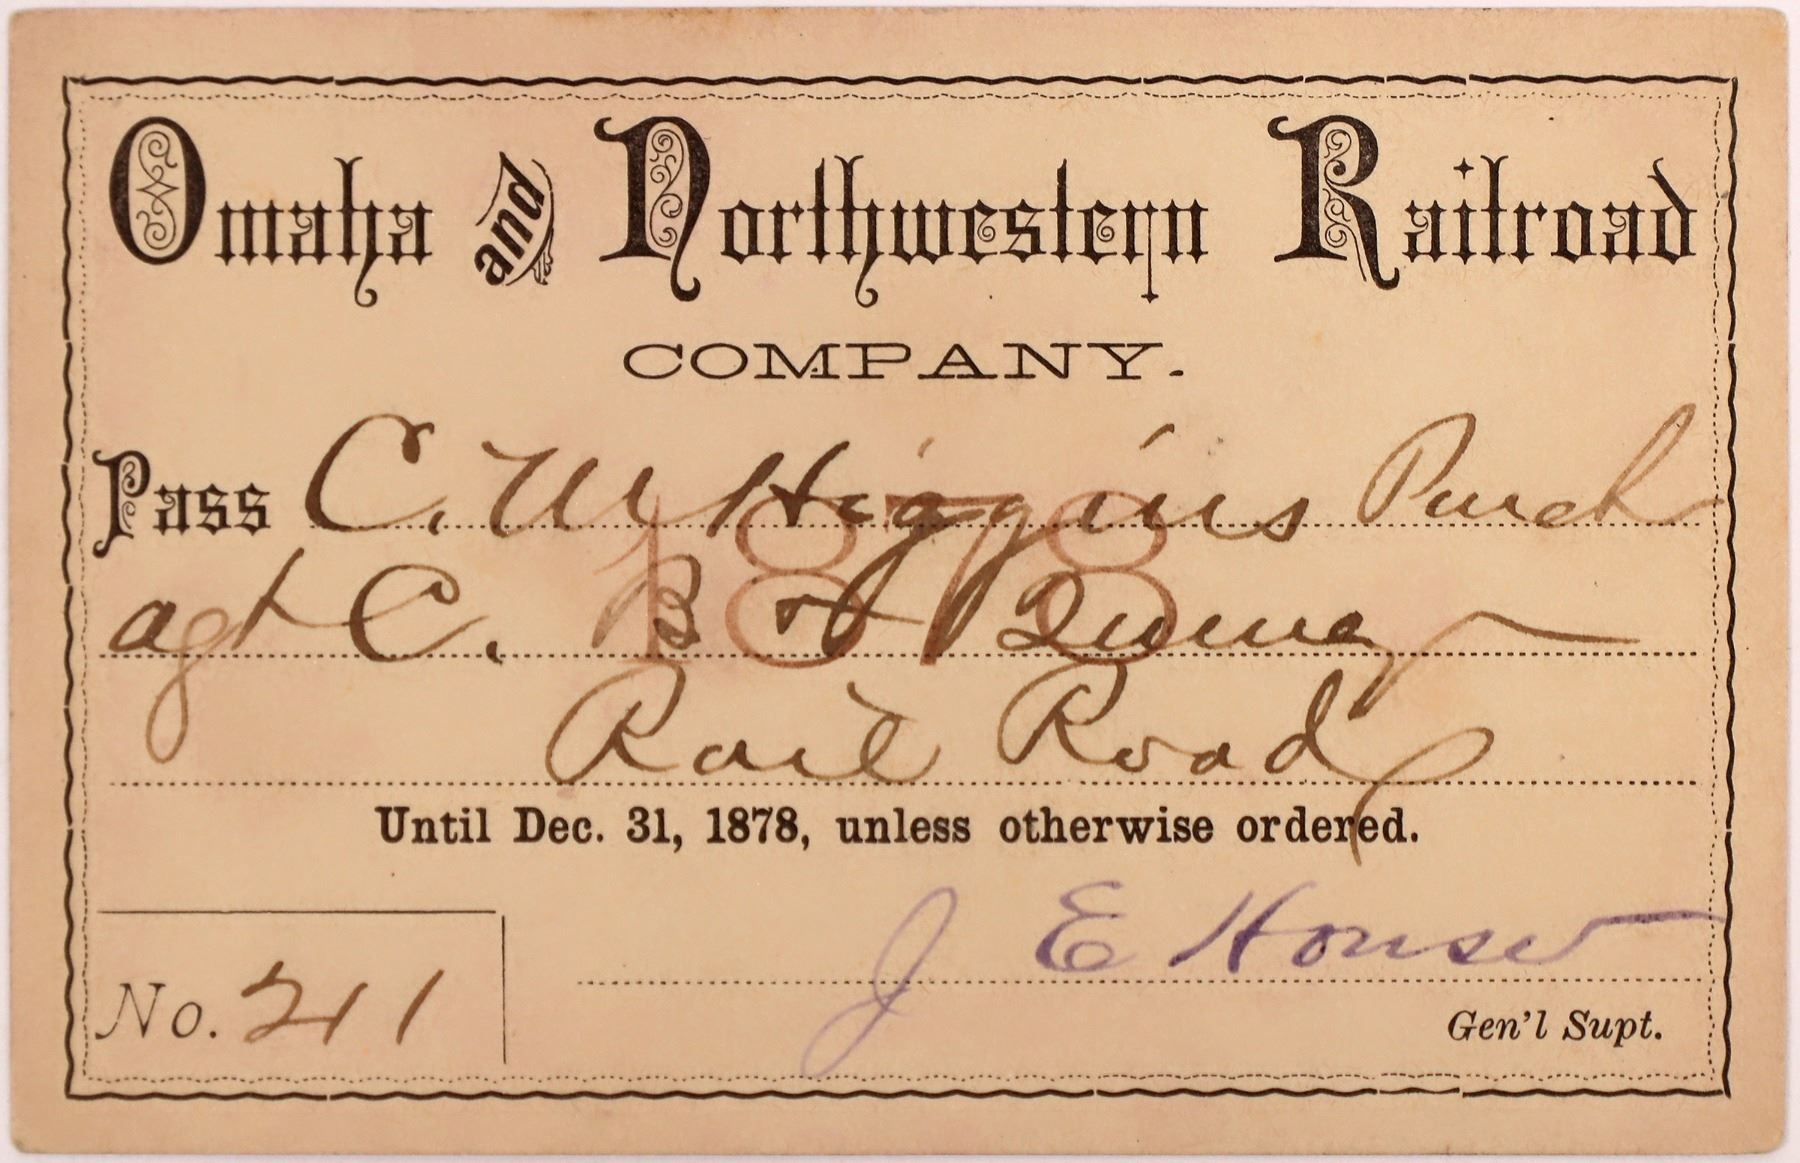 Omaha and Northwestern Railroad
COMPANY.
Pass C. W Higgins Purch
1878
agt C. B & Quincy
Rail Road
Until Dec. 31, 1878, unless otherwise ordered.
J E House
No. 211
Gen'l Supt.